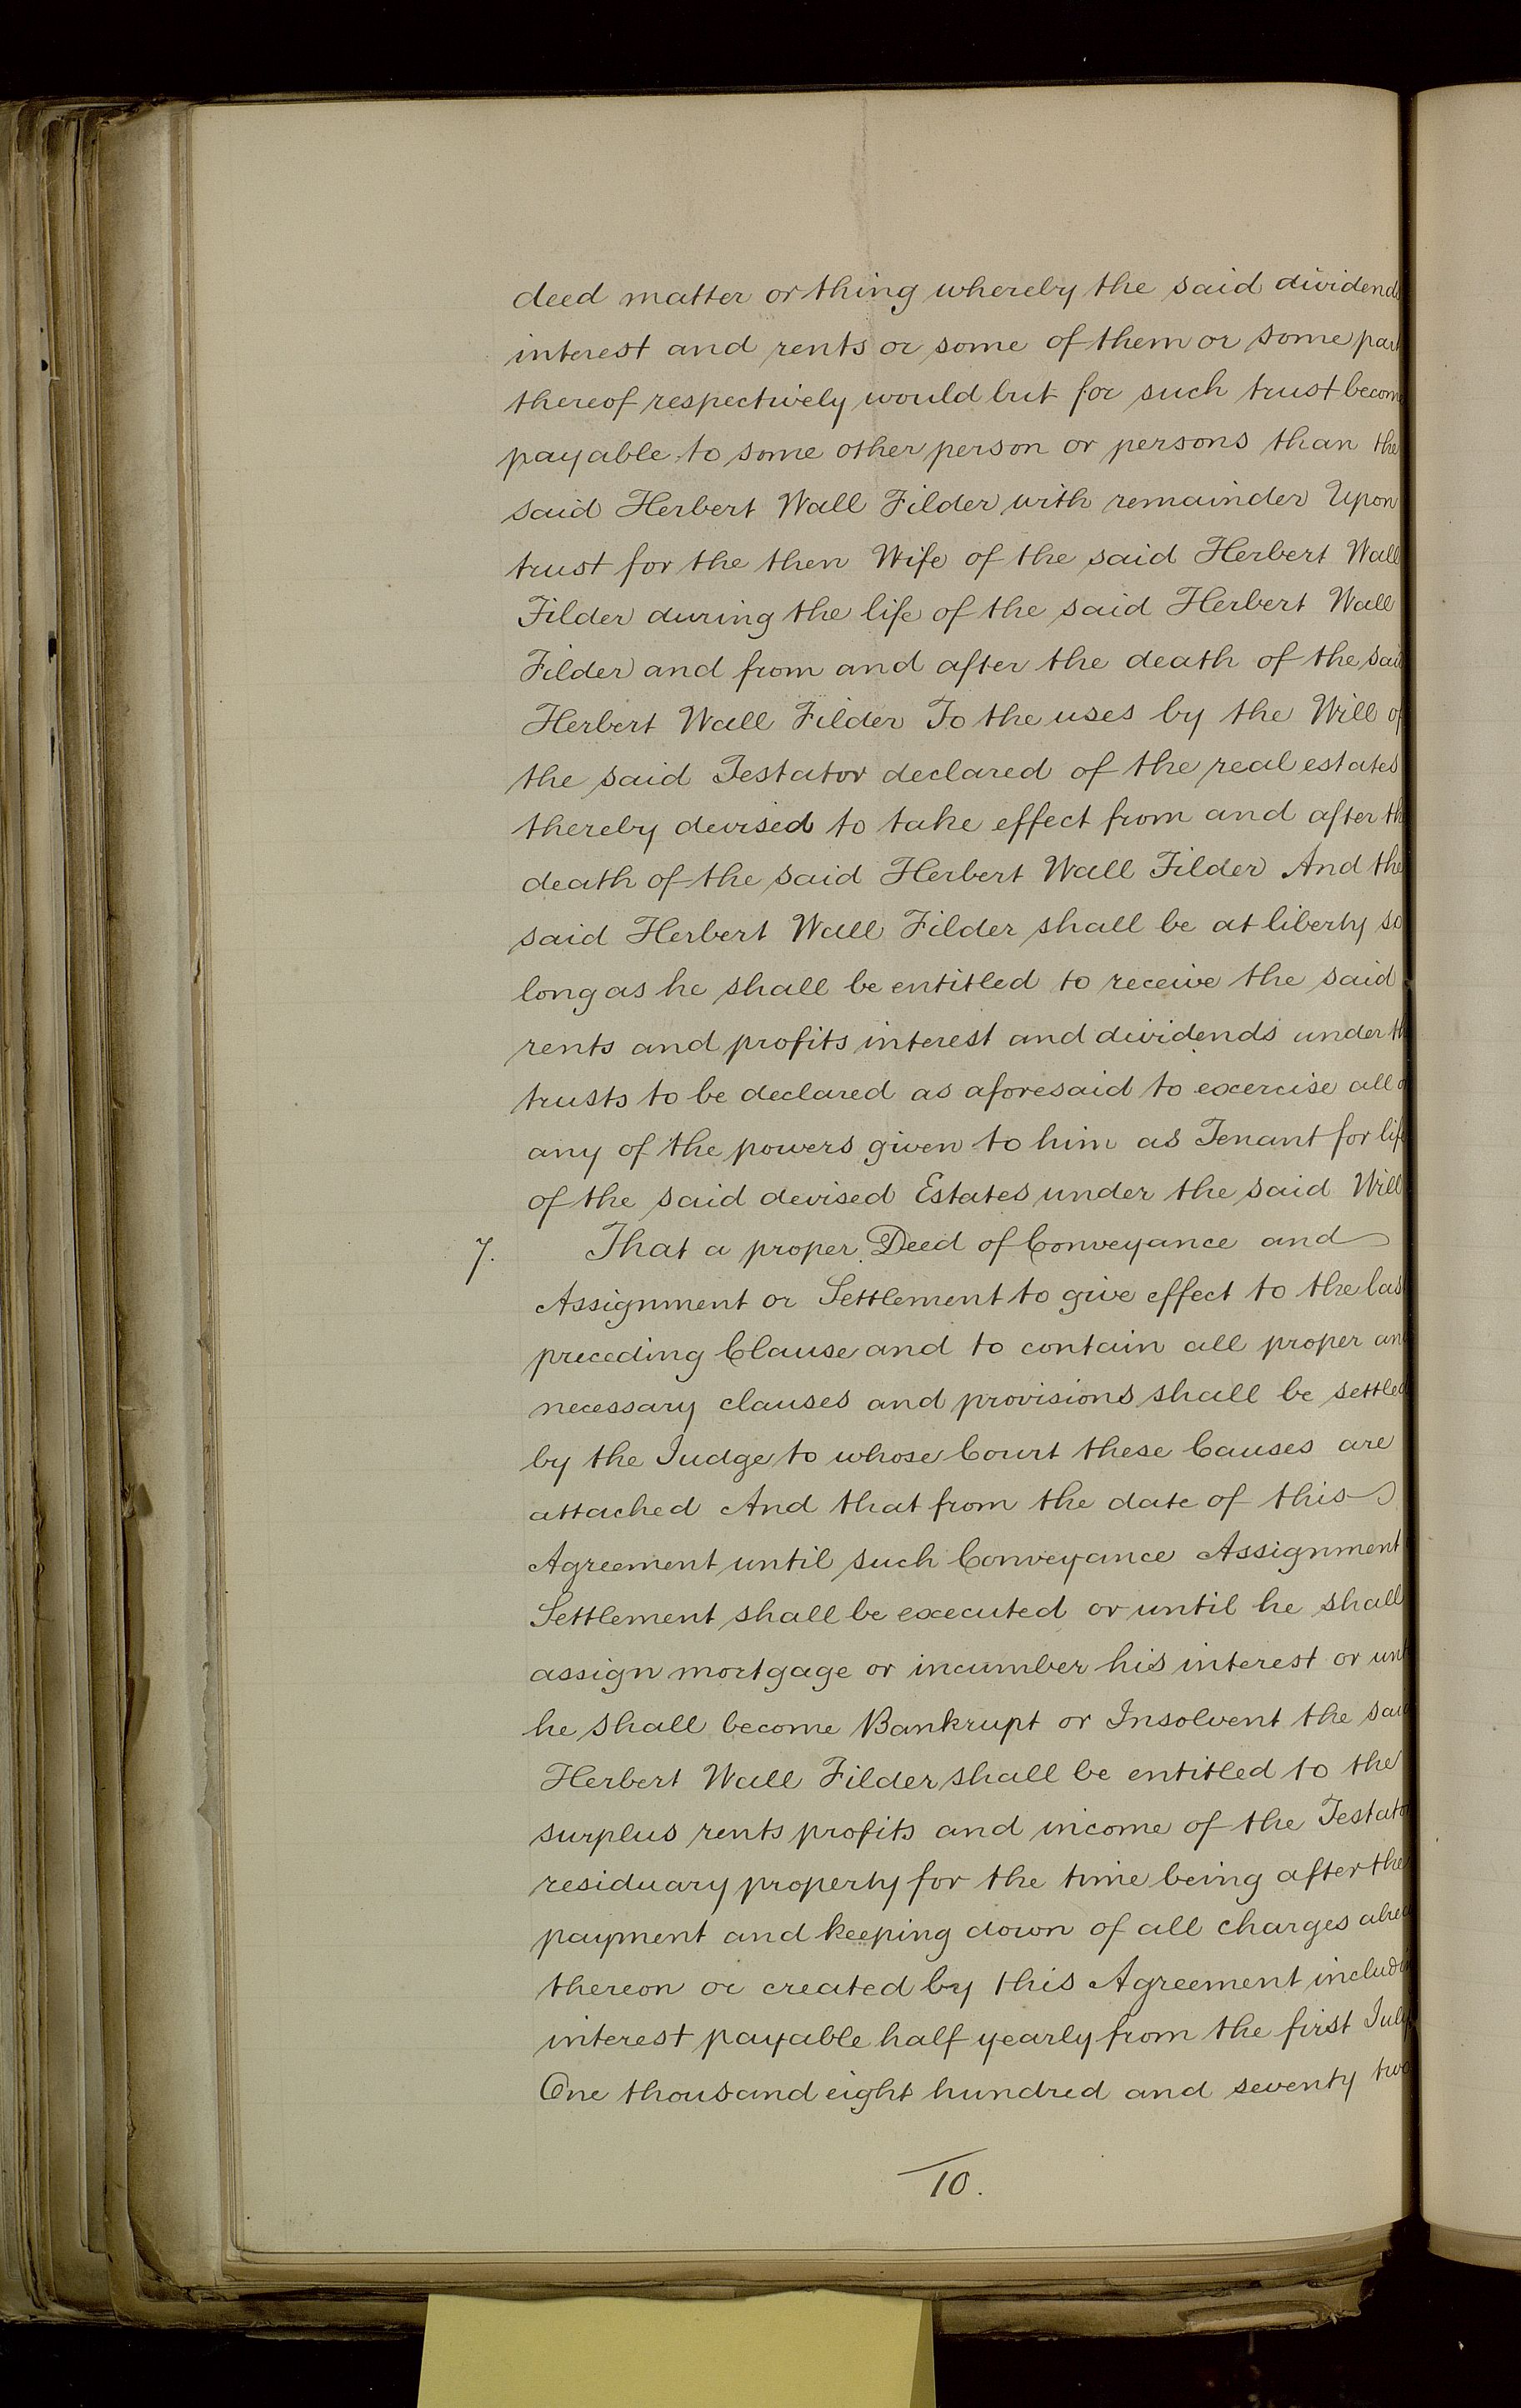 deed matter or thing whereby the said dividends
interest and rents or some of them or some part
thereof respectively would but for such trust become
payable to some other person or persons than the
said Herbert Wall Filder with remainder Upon
trust for the then Wife of the said Herbert Wall
Filder during the life of the said Herbert Wall
Filder and from and after the death of the said
Herbert Wall Filder To the uses by the Will of
the said Testator declared of the real estates
thereby devised to take effect from and after the
death of the said Herbert Wall Filder And the
said Herbert Wall Filder shall be at liberty so
long as he shall be entitled to receive the said
rents and profits interest and dividends under the
trusts to be declared as aforesaid to exercise all or
any of the powers given to him as Tenant for life
of the said devised Estates under the said Will
7. That a proper Deed of Conveyance and
Assignment or Settlement to give effect to the last
preceding Clause and to contain all proper and
necessary clauses and provisions shall be settled
by the Judge to whose Court these Causes are
attached And that from the date of this
Agreement until such Conveyance Assignment
Settlement shall be executed or until he shall
assign mortgage or incumber his interest or until
he shall become Bankrupt or Insolvent the said
Herbert Wall Filder shall be entitled to the
surplus rents profits and income of the Testator
residuary property for the time being after the
payment and keeping down of all charges
thereon or created by this Agreement including
interest payable half yearly from the first July
One thousand eight hundred and seventy two
10.